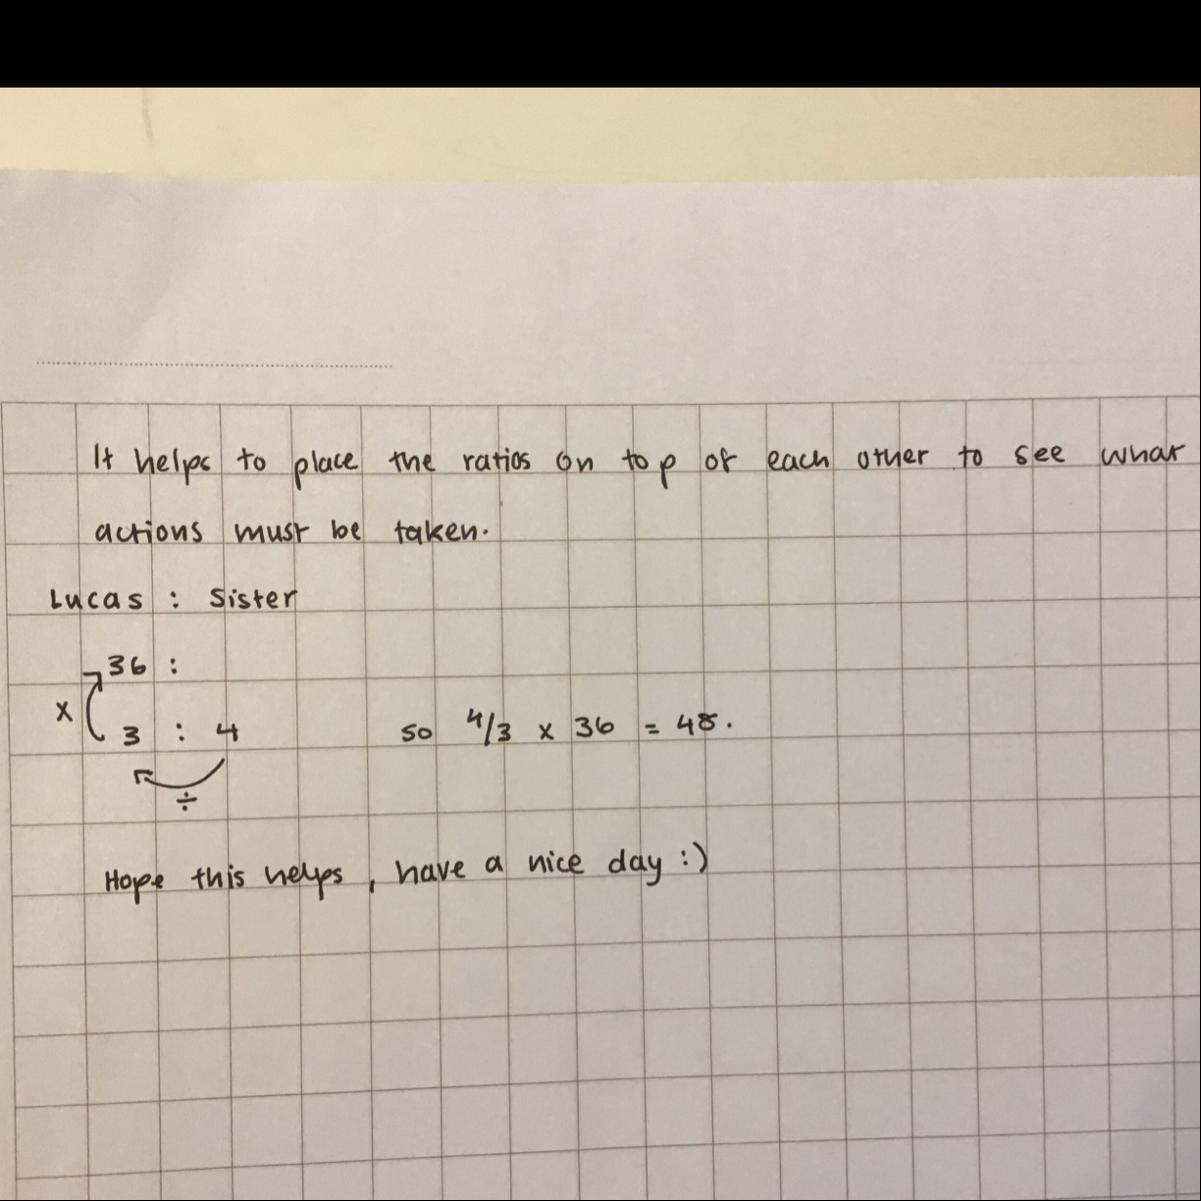 It helps to place the ratios on top of each other to see what
actions must be taken.
Lucas : Sister
36 :
x
3 : 4 so 4/3 x 36 = 48.
÷
Hope this helps, have a nice day :)